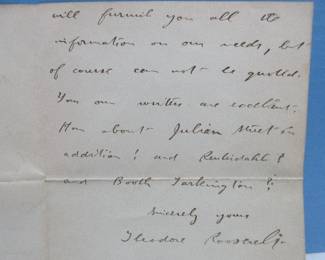 will furnish you all the
information on our needs, but
of course can not be quoted.
You our writers are excellent.
How about Julian Street in
addition? and
and Booth Tarkington?
Sincerely yours
Theodore Roosevelt